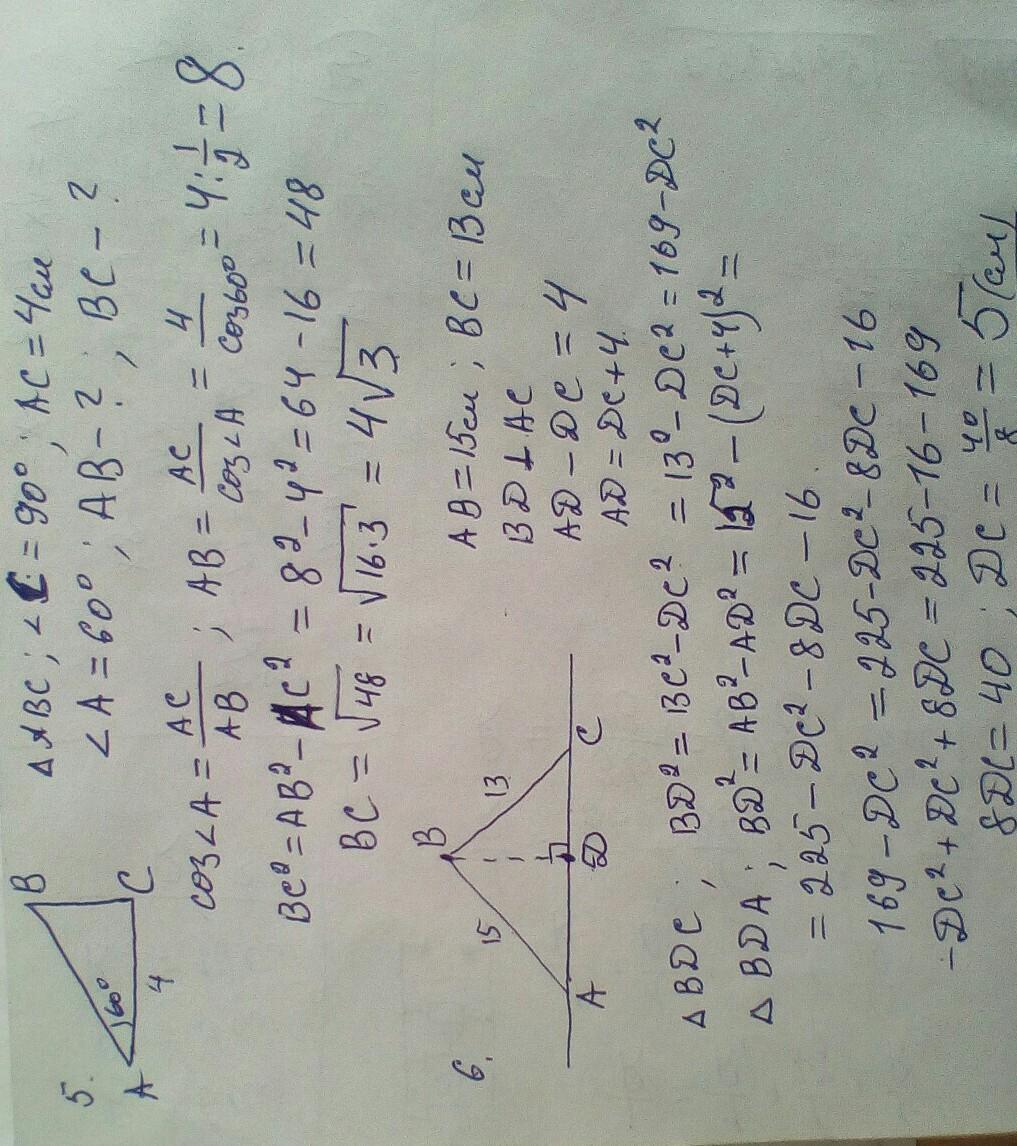 5.
B
60°
A
4
C
△ABC; ∠C = 90°; AC = 4см
∠A = 60°; AB - ?; BC - ?
cos∠A = AC/AB; AB = AC/cos∠A = 4/cos60° = 4:1/2 = 8.
BC² = AB² - AC² = 8² - 4² = 64 - 16 = 48
BC = √48 = √16·3 = 4√3
6.
B
15
13
A
D
C
AB = 15см; BC = 13см
BD ⊥ AC
AD - DC = 4
AD = DC + 4
△BDC; BD² = BC² - DC² = 13² - DC² = 169 - DC²
△BDA; BD² = AB² - AD² = 15² - (DC+4)² =
= 225 - DC² - 8DC - 16.
169 - DC² = 225 - DC² - 8DC - 16
-DC² + DC² + 8DC = 225 - 16 - 169
8DC = 40; DC = 40/8 = 5(см)